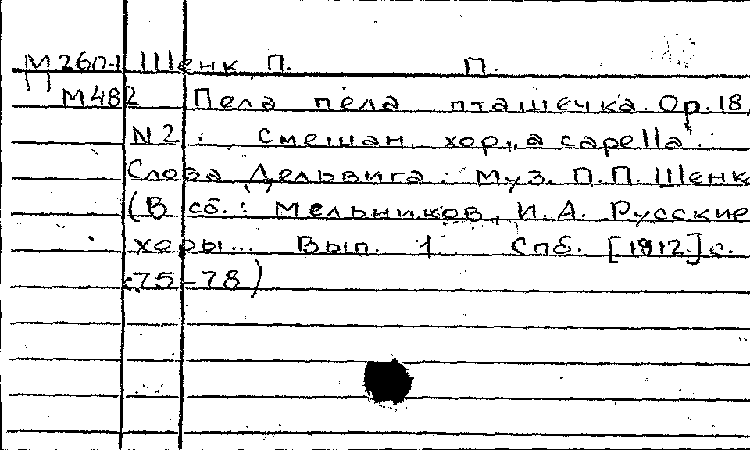 М 26п-1 Шенк П. П.
М482 Пела пела пташечка. Ор. 18,
N 2. Смешан хор „a capella“.
Слова Дельвига. Муз. П.П. Шенк
(В сб.: Мельников, И. А. Русские
хоры... Вып. 1 Спб. [1912] с.
75-78)